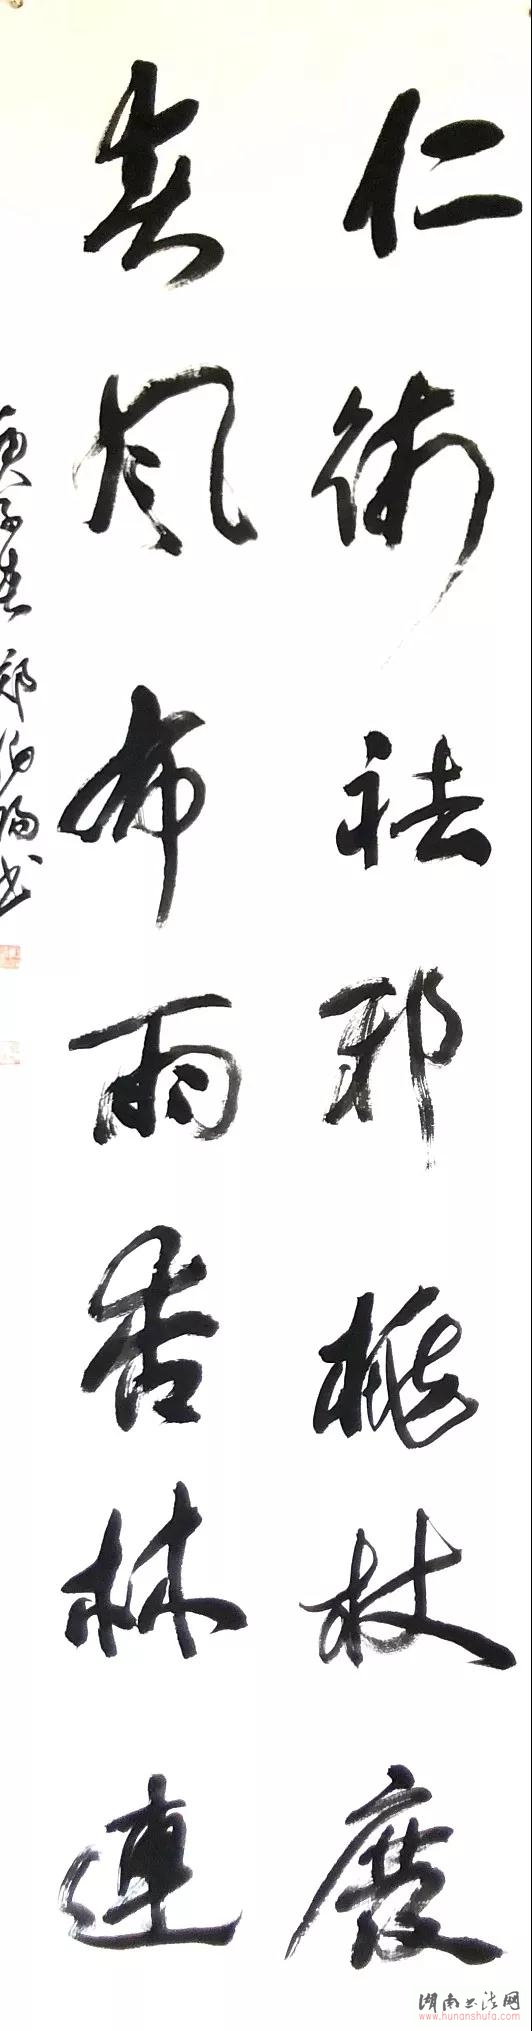 仁術祛邪桃杖度
春風布雨杏林連
庚子春 鄭 書
湖南书法网
www.hunanshufa.com